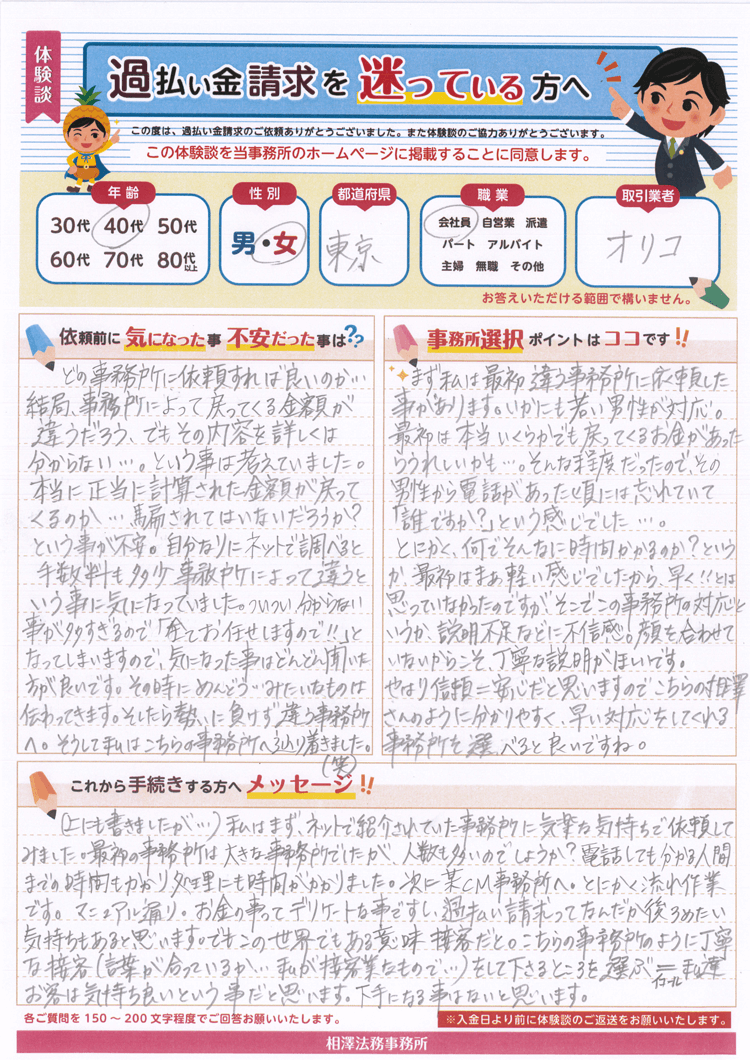 体験談
過払い金請求を迷っている方へ
この度は、過払い金請求のご依頼ありがとうございました。また体験談のご協力ありがとうございます。
この体験談を当事務所のホームページに掲載することに同意します。
年齢
30代 40代 50代
60代 70代 80代以上
性別
男・女
都道府県
東京
職業
会社員 自営業 派遣
パート アルバイト
主婦 無職 その他
取引業者
オリコ
お答えいただける範囲で構いません。
依頼前に気になった事 不安だった事は??
どの事務所に依頼すれば良いのか…
結局、事務所によって戻ってくる金額が
違うだろう、でもその内容を詳しくは
分からない…。という事は考えていました。
本当に正当に計算された金額が戻って
くるのか…騙されてはいないだろうか?
という事が不安。自分なりにネットで調べると
手数料も多少事務所によって違うと
いう事に気になっていました。ついつい分からない
事が多すぎるので「全てお任せしますので!!」と
なってしまいますので、気になった事はどんどん聞いた
方が良いです。その時にめんどう…みたいなものは
伝わってきます。そしたら勢いに負けず違う事務所
へ。そうして私はこちらの事務所へ辿り着きました。
(笑)
事務所選択ポイントはココです!!
まず私は最初違う事務所に依頼した
事があります。いかにも若い男性が対応。
最初は本当いくらかでも戻ってくるお金があった
らうれしいかも…。そんな程度だったので、その
男性から電話があった頃には忘れていて
「誰ですか?」という感じでした…。
とにかく、何でそんなに時間かかるのか?という
か、最初はまあ軽い感じでしたから、早く!!とは
思っていなかったのですが、そこでこの事務所の対応と
いうか、説明不足などに不信感。顔を合わせて
いないからこそ、丁寧な説明がほしいです。
やはり信頼=安心だと思いますのでこちらの相澤
さんのように分かりやすく、早い対応をしてくれる
事務所を選べると良いですね。
これから手続きする方へメッセージ!!
(上にも書きましたが…)私はまず、ネットで紹介されていた事務所に気楽な気持ちで依頼して
みました。最初の事務所は大きな事務所でしたが、人数も多いのでしょうか?電話しても分かる人間
までの時間もかかり処理にも時間がかかりました。次に某CM事務所へ。とにかく流れ作業
です。マニュアル通り。お金の事ってデリケートな事ですし、過払い請求ってなんだか後ろめたい
気持ちもあると思います。でもこの世界でもある意味接客だと。こちらの事務所のように丁寧
な接客(言葉が合っているか…私が接客業なもので…)をして下さるところを選ぶ=イコール私達
お客は気持ち良いという事だと思います。下手になる事はないと思います。
各ご質問を150〜200文字程度でご回答お願いいたします。
※入金日より前に体験談のご返送をお願いいたします。
相澤法務事務所